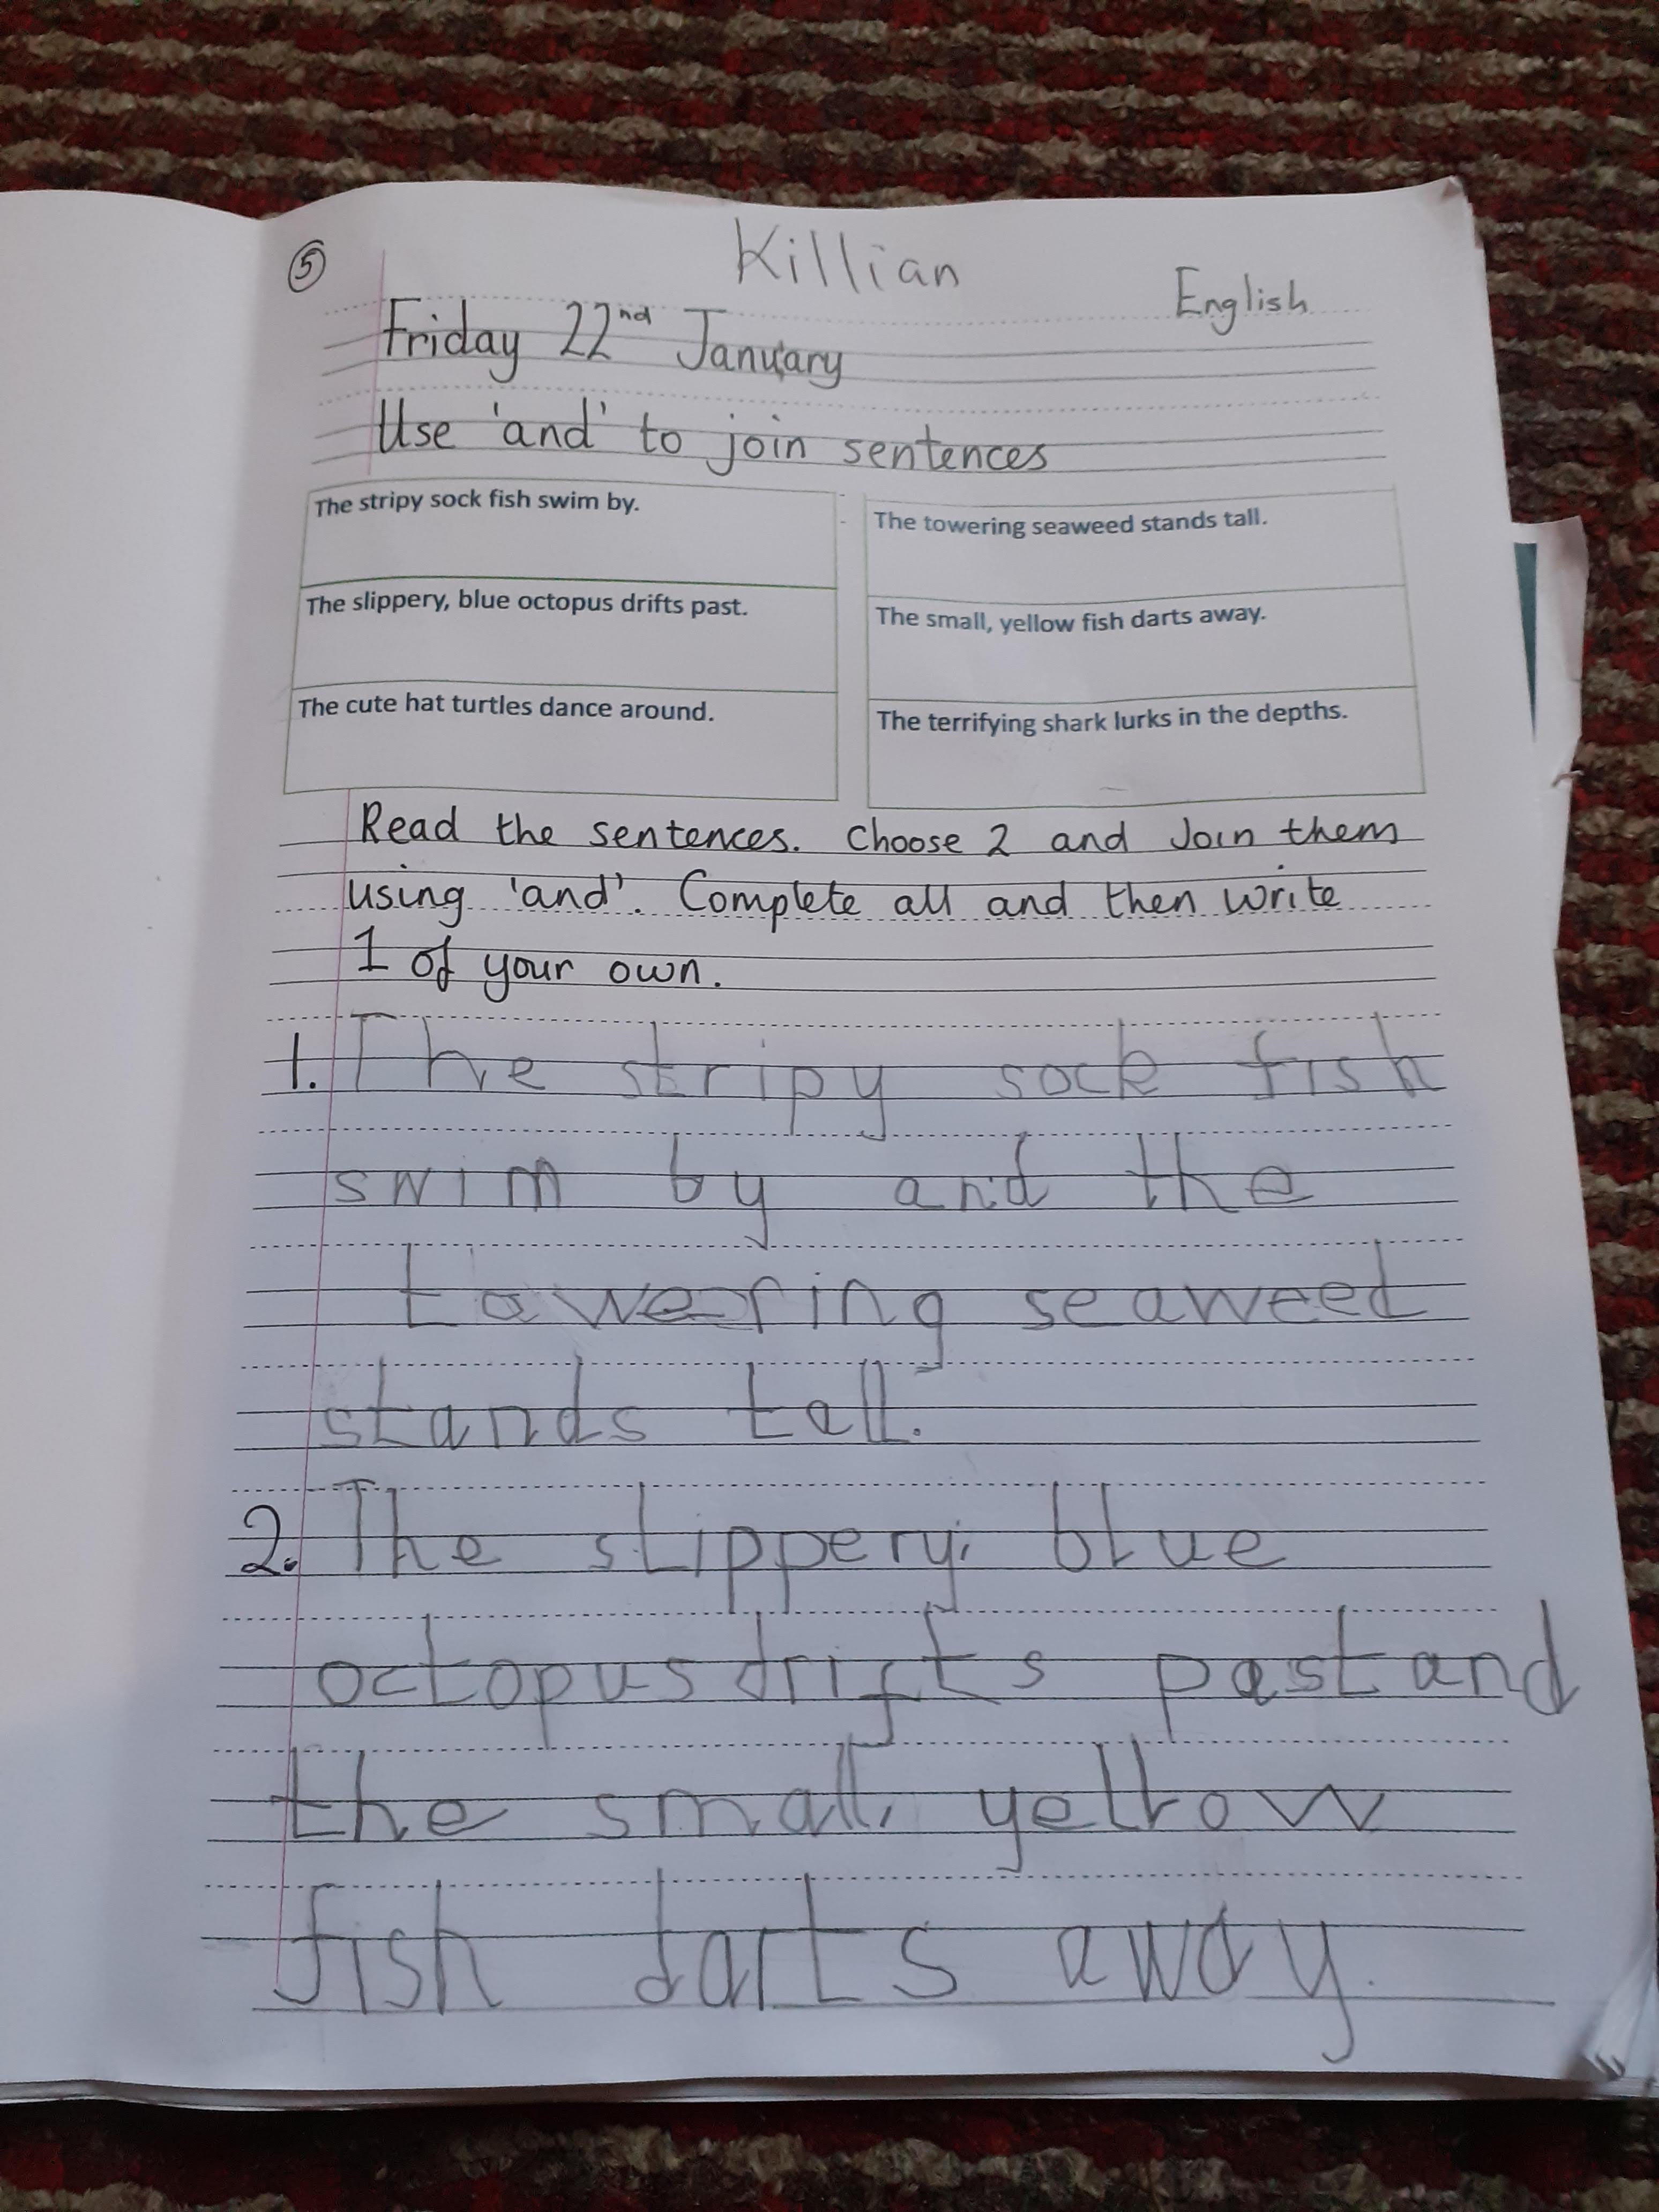 5
Killian
English
Friday 22nd January
Use 'and' to join sentences
The stripy sock fish swim by.
The slippery, blue octopus drifts past.
The cute hat turtles dance around.
The towering seaweed stands tall.
The small, yellow fish darts away.
The terrifying shark lurks in the depths.
Read the sentences. Choose 2 and Join them
using 'and'. Complete all and then write
1 of your own.
1. The stripy sock fish
swim by and the
towering seaweed
stands tall.
2. The slippery, blue
octopus drifts past and
the small, yellow
fish darts away.